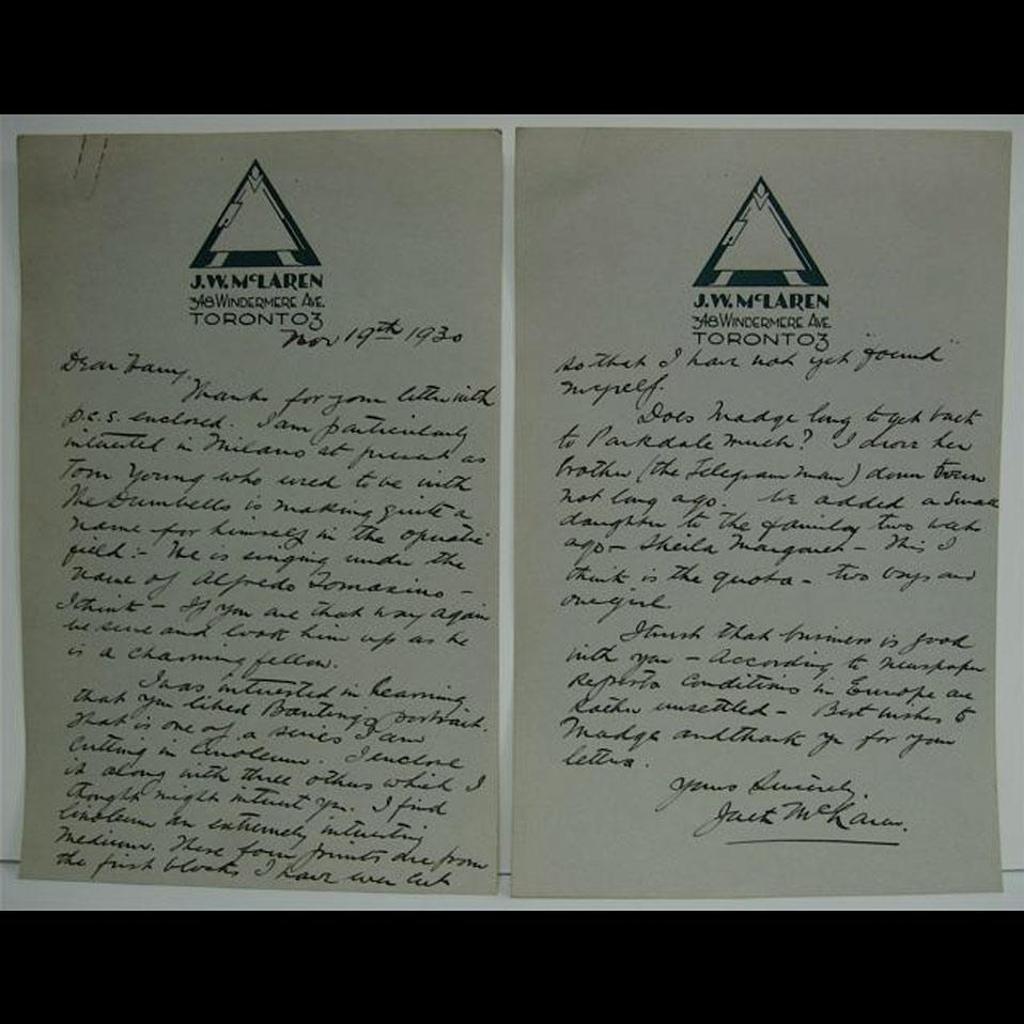 J.W. McLAREN
348 WINDERMERE AVE.
TORONTO 3
Nov 19th 1930
Dear
Thanks for your letter with
p.c.s. enclosed. I am particularly
interested in Milano at present as
Tom Young who used to be with
The Dumbells is making quite a
name for himself in the operatic
field:- He is singing under the
name of Alfredo Tomasino -
I think - If you are that way again
be sure and look him up as he
is a charming fellow.
I was interested in hearing
that you liked Banting's portrait.
That is one of a series I am
cutting in linoleum. I enclose
it along with three others which I
thought might interest you. I find
linoleum an extremely interesting
medium. These four prints are from
the first blocks I have ever cut
J.W. McLAREN
348 WINDERMERE AVE.
TORONTO 3
so that I have not yet "found"
myself.
Does Madge long to get back
to Parkdale much? I drove her
brother (the Telegram man) down town
not long ago. We added a small
daughter to the family two weeks
ago - Sheila Margaret - This I
think is the quota - two boys and
one girl.
I trust that business is good
with you - According to newspaper
reports conditions in Europe are
rather unsettled - Best wishes to
Madge and thank you for your
letters.
Yours Sincerely,
Jack McLaren.